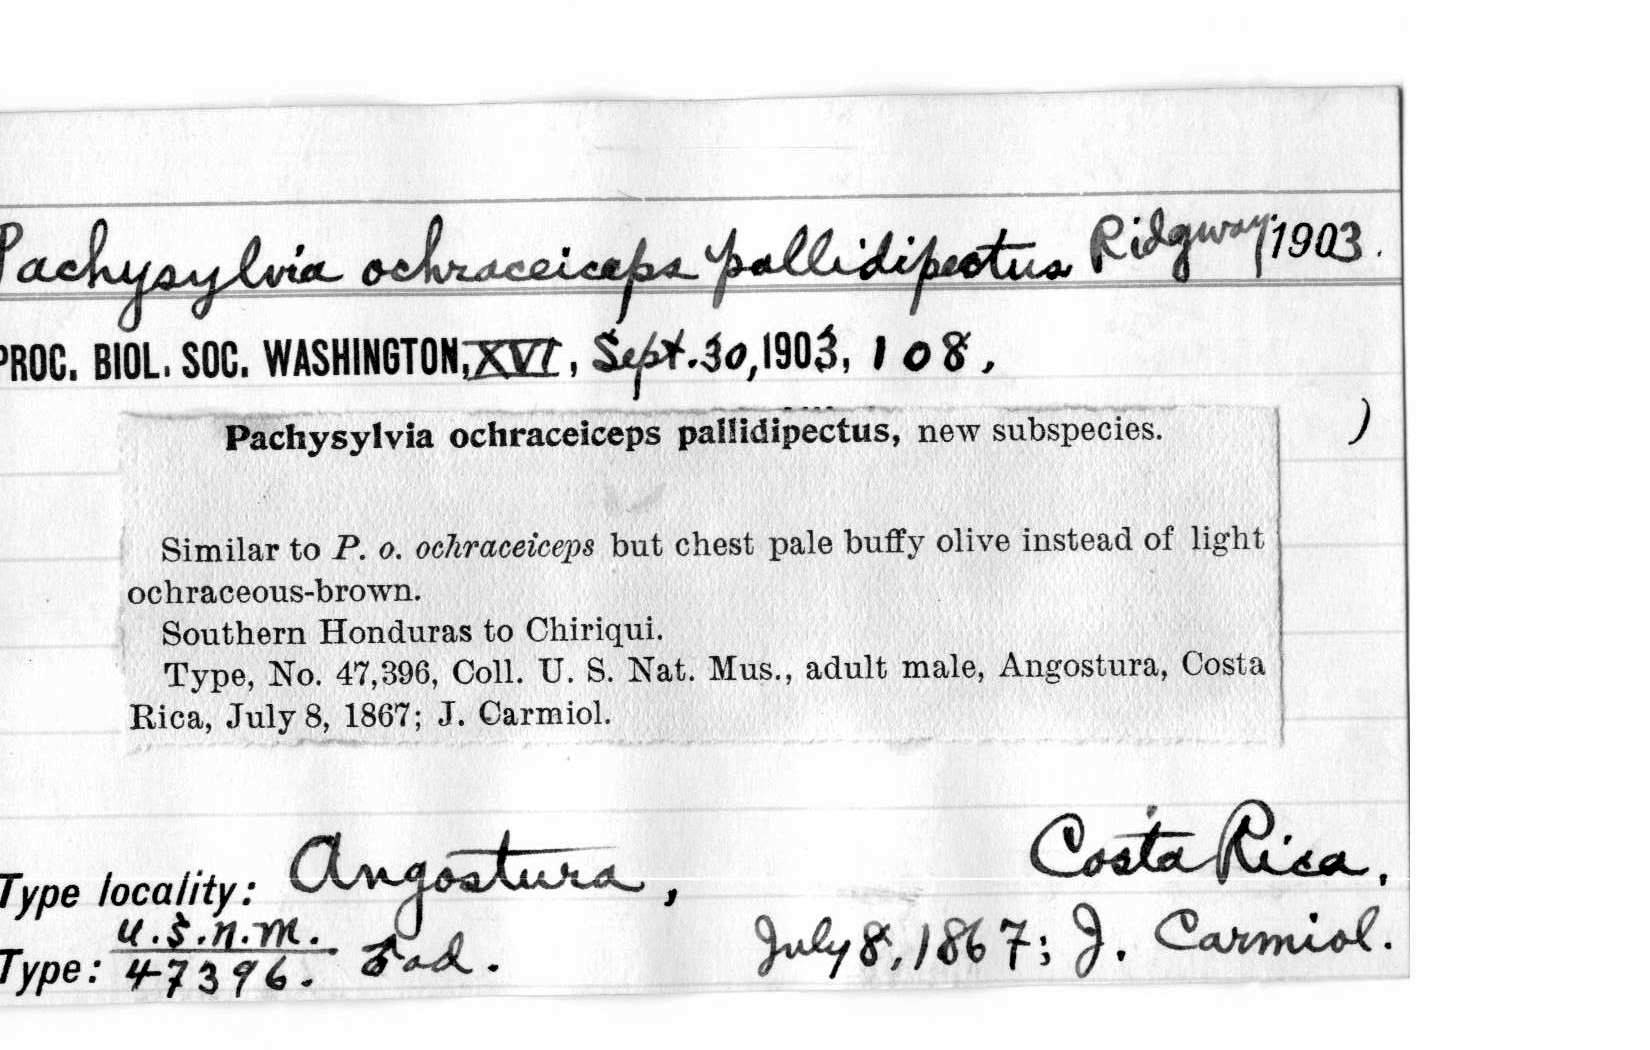 Pachysylvia ochraceiceps pallidipectus Ridgway 1903.
PROC. BIOL. SOC. WASHINGTON, XVI, Sept. 30, 1903, 108,
)
Pachysylvia ochraceiceps pallidipectus, new subspecies.
Similar to P. o. ochraceiceps but chest pale buffy olive instead of light
ochraceous-brown.
Southern Honduras to Chiriqui.
Type, No. 47,396, Coll. U. S. Nat. Mus., adult male, Angostura, Costa
Rica, July 8, 1867; J. Carmiol.
Type locality: Angostura, Costa Rica.
U.S.N.M.
Type: 47396. ♂ ad. July 8, 1867; J. Carmiol.